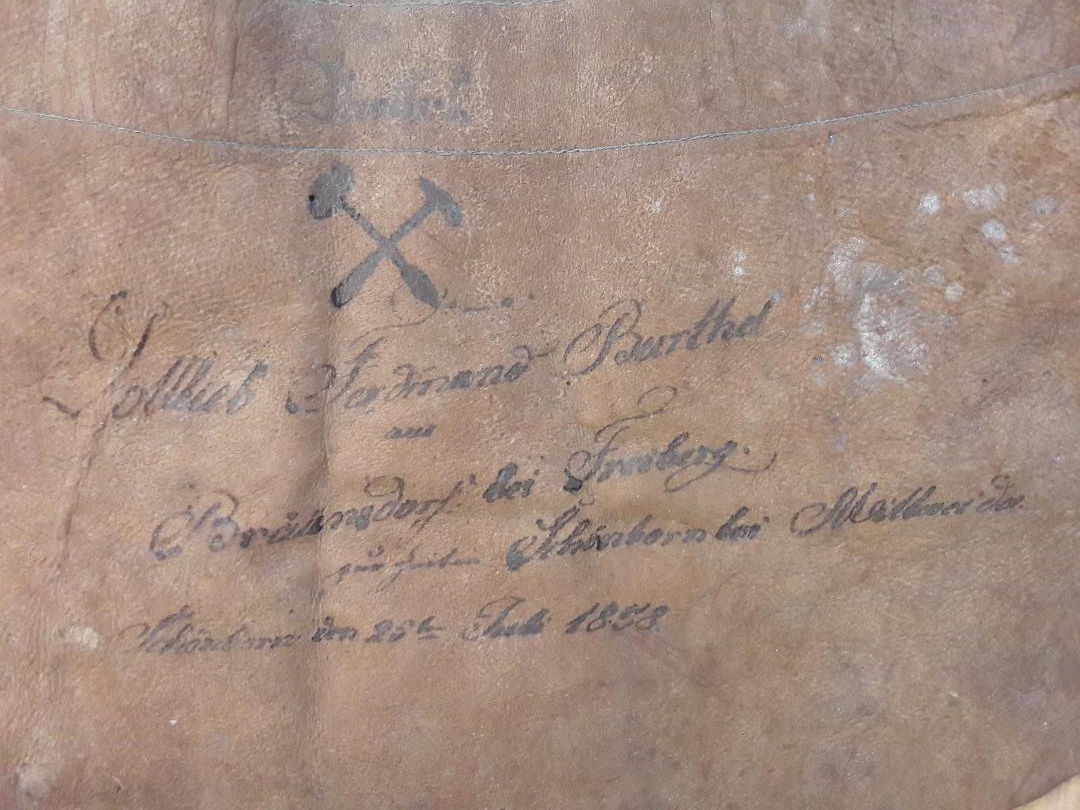 Gottlieb Ferdmand Barthel
aus
Bräunsdorf bei Freiberg.
zur Zeit in Schönborn bei Mittweida
Schönborn den 25ten Juli 1858